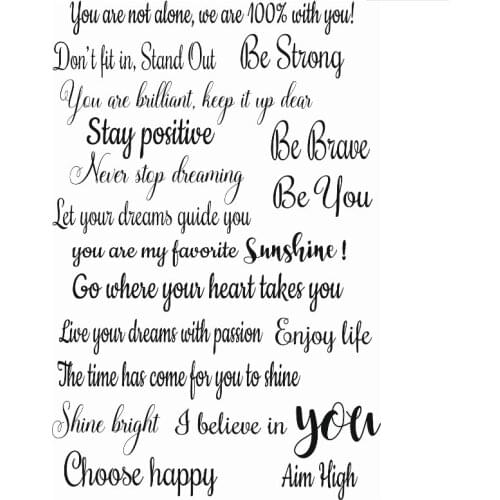 You are not alone, we are 100% with you!
Don't fit in, Stand Out
Be Strong
You are brilliant, keep it up dear
Stay positive
Be Brave
Never stop dreaming
Be You
Let your dreams guide you
you are my favorite Sunshine!
Go where your heart takes you
Live your dreams with passion
Enjoy life
The time has come for you to shine
Shine bright
I believe in you
Choose happy
Aim High